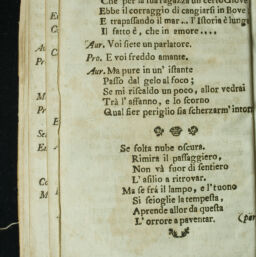 Che per la sua ragazza un certo Giove
Ebbe il corraggio di cangiarsi in Bove
E trapassando il mar... l'Istoria è lunga
Il fatto è, che in amore....
Aur. Voi siete un parlatore.
Pro. E voi freddo amante.
Aur. Ma pure in un' istante
Passo dal gelo al foco;
Se mi riscaldo un poco, allor vedrai
Trà l'affanno, e lo scorno
Qual fier periglio sia scherzarm' intorno
Se folta nube oscura.
Rimira il passaggiero,
Non và fuor di sentiero
L'asilio a ritrovar.
Ma se frà il lampo, e l'tuono
Si scioglie la tempesta,
Aprende allor da questa
L'orrore a paventar.
(par